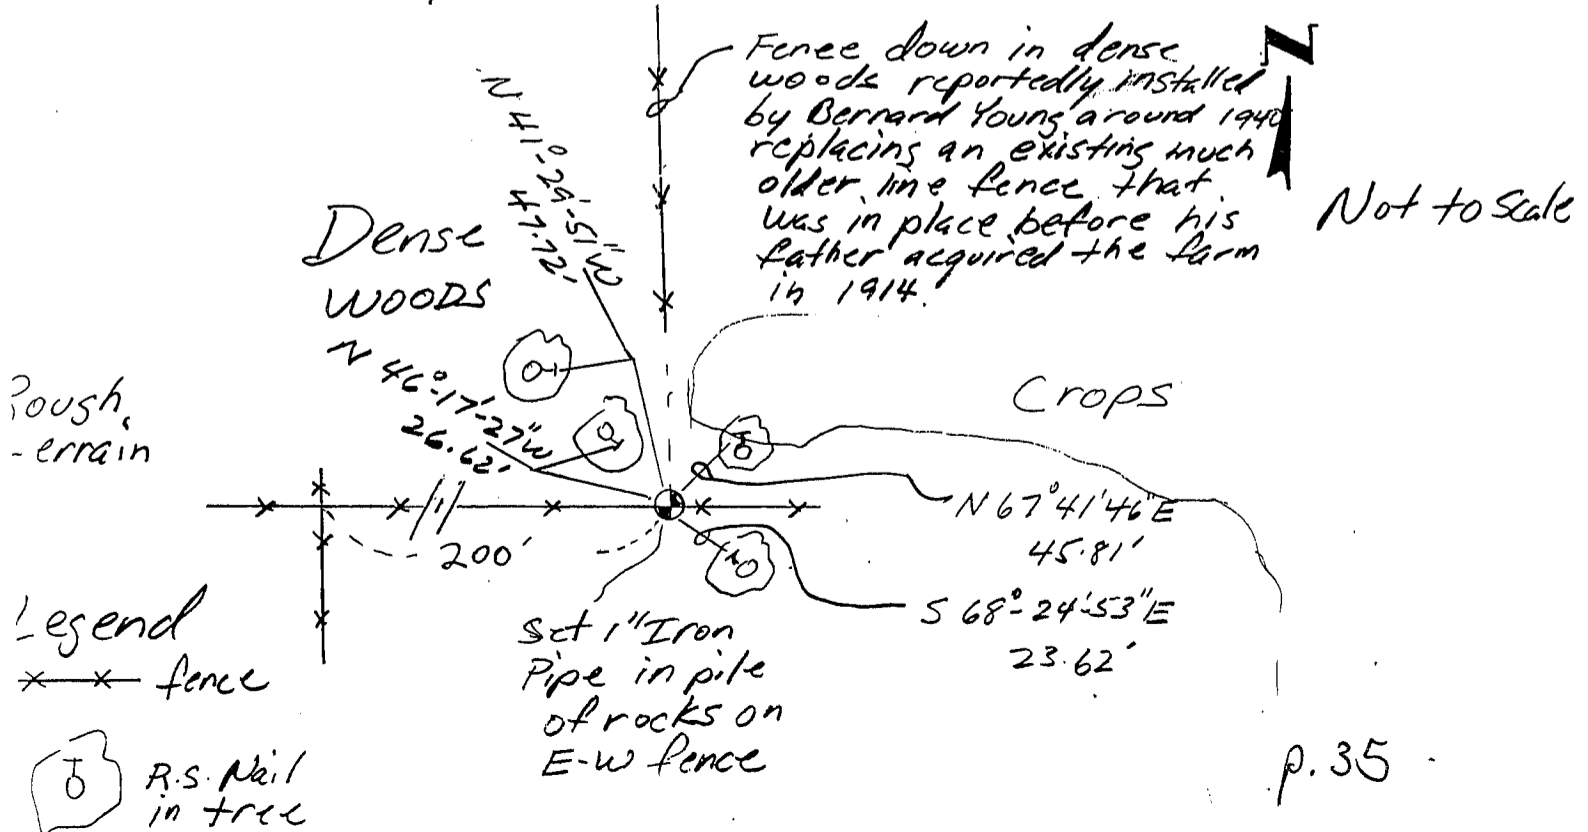 Fence down in dense
woods reportedly installed
by Bernard Young around 1940
replacing an existing much
older line fence that
was in place before his
father acquired the farm
in 1914.
N
Not to scale
N 41°-29'-51"W
47.72'
Dense
WOODS
N 46°-17'-27"W
26.62'
Rough
Terrain
Crops
N 67°41'46"E
45.81'
200'
S 68°-24'-53"E
23.62'
Set 1" Iron
Pipe in pile
of rocks on
E-W fence
Legend
fence
R.S. Nail
in tree
p. 35